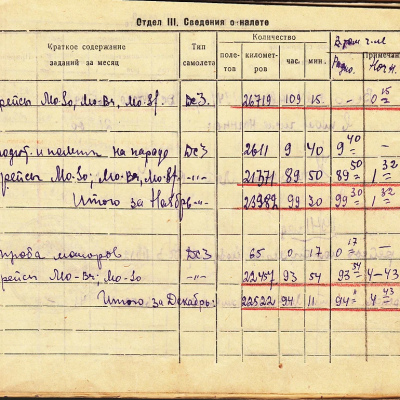 Отдел III. Сведения о налете
Краткое содержание заданий за месяц Тип самолета Количество полетов километров час. мин. В том числе Радио. Примечание Ночн.
рейсы Мо-Зо; Мо-Вч, Мо-Вf ДС3. 26719 109 15 - 0 15
и полеты на параде ДС3 2611 9 40 9 40 -
рейсы Мо-Зо; Мо-Вч; Мо-Вf -"- 21371 89 50 89 50 1 32
Итого за Ноябрь -"- 23982 99 30 99 30 1 32
проба моторов ДС3 65 0 17 0 17 -
рейсы Мо-Вч; Мо-Зо -"- 22457 93 54 93 54 4-43
Итого за Декабрь: 22522 94 11 94 11 4 43